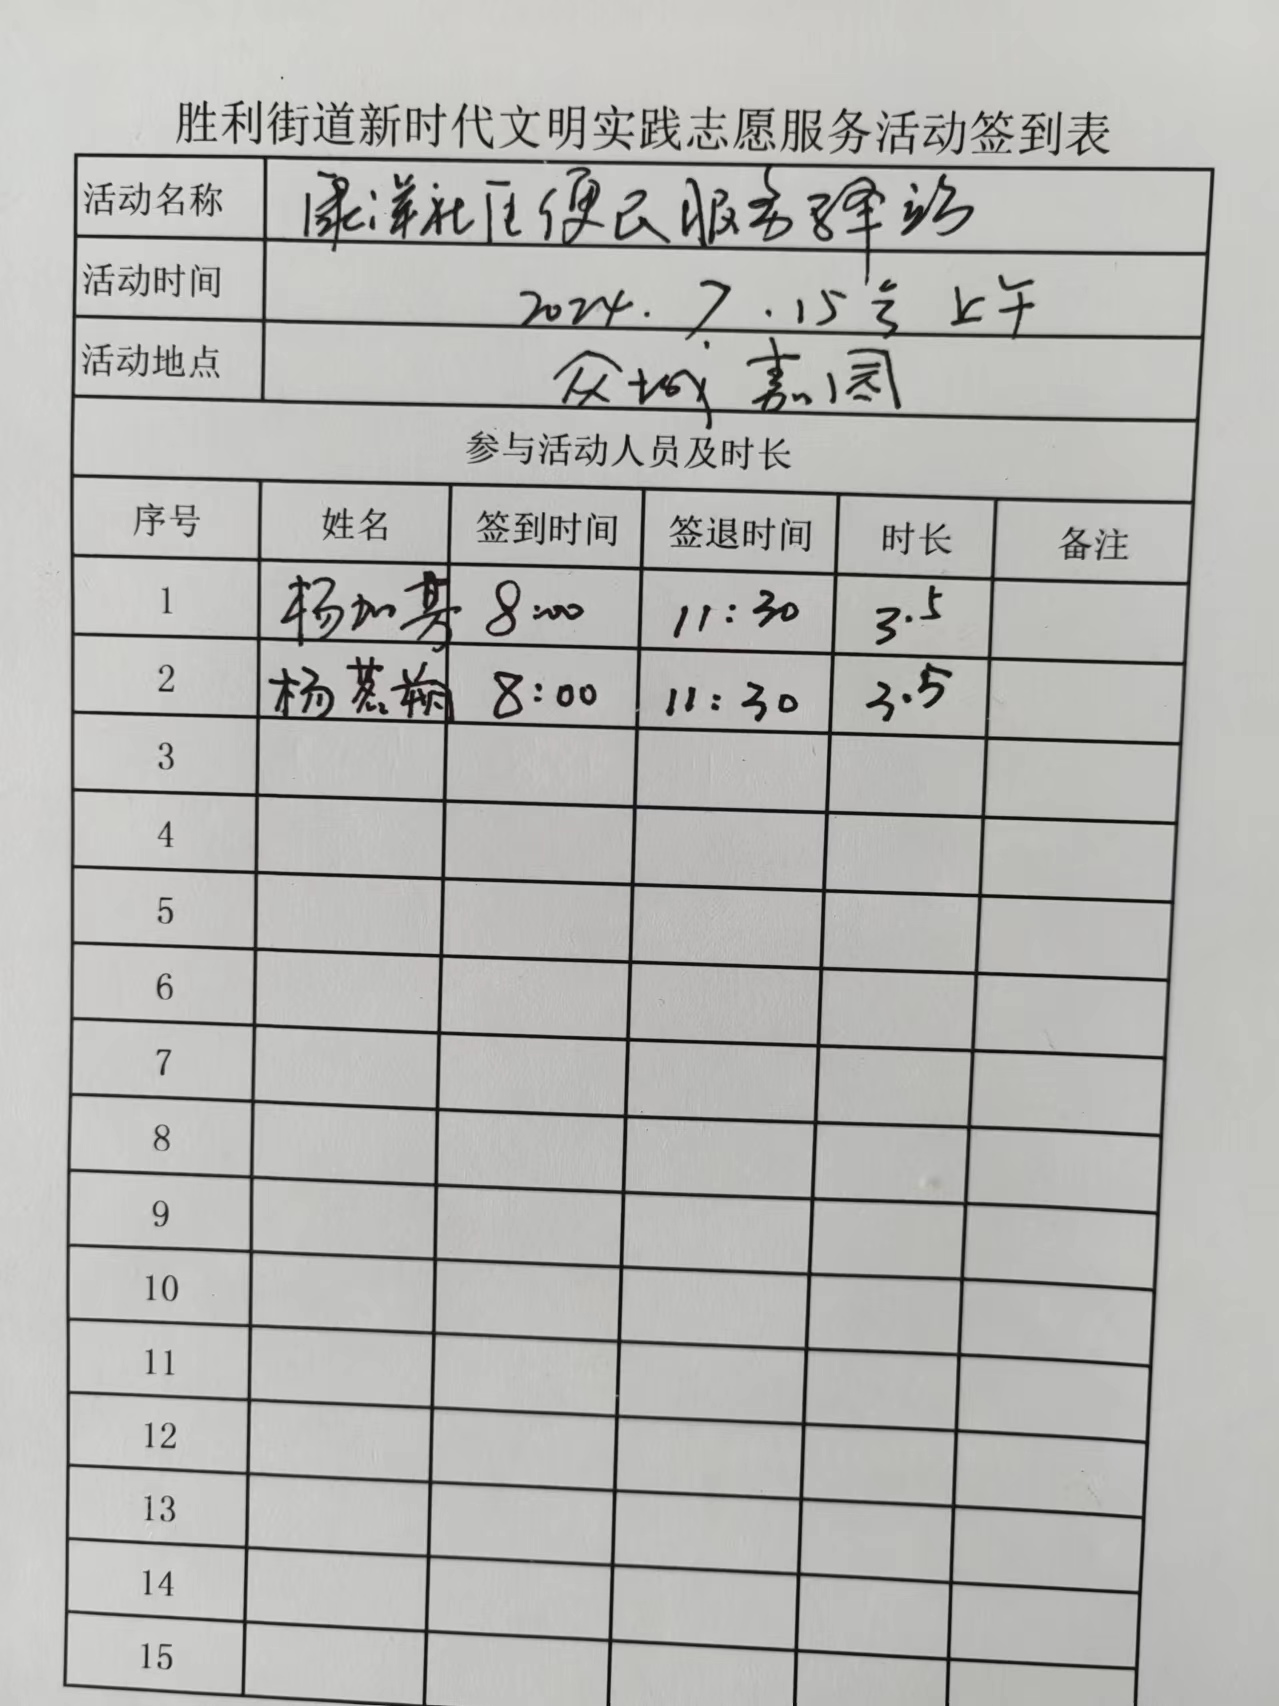 胜利街道新时代文明实践志愿服务活动签到表
活动名称 康洋社区便民服务驿站
活动时间 2024.7.15号 上午
活动地点 众城嘉园
参与活动人员及时长
序号 姓名 签到时间 签退时间 时长 备注
1 杨加 8:00 11:30 3.5
2 杨慕 8:00 11:30 3.5
3
4
5
6
7
8
9
10
11
12
13
14
15